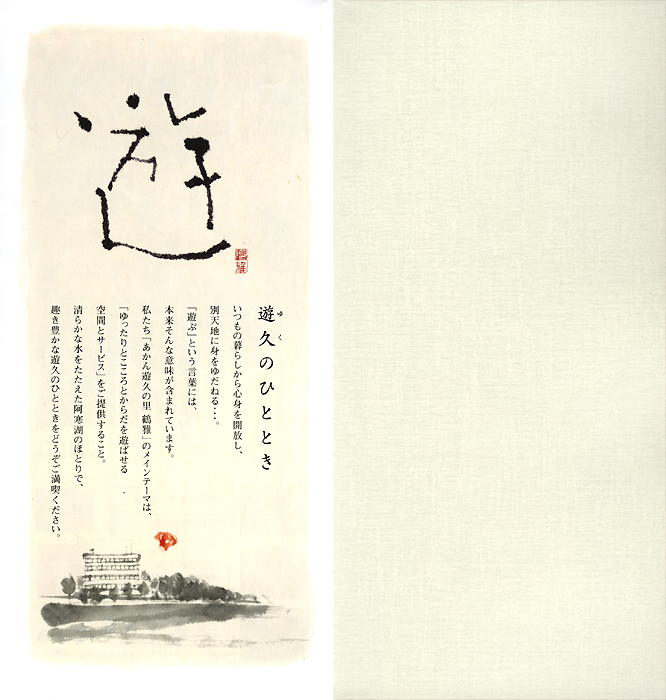 遊
鶴雅
遊久のひととき
ゆく
いつもの暮らしから心身を開放し、
別天地に身をゆだねる・・・。
「遊ぶ」という言葉には、
本来そんな意味が含まれています。
私たち「あかん遊久の里 鶴雅」のメインテーマは、
「ゆったりとこころとからだを遊ばせる
空間とサービス」をご提供すること。
清らかな水をたたえた阿寒湖のほとりで、
趣き豊かな遊久のひとときをどうぞご満喫ください。